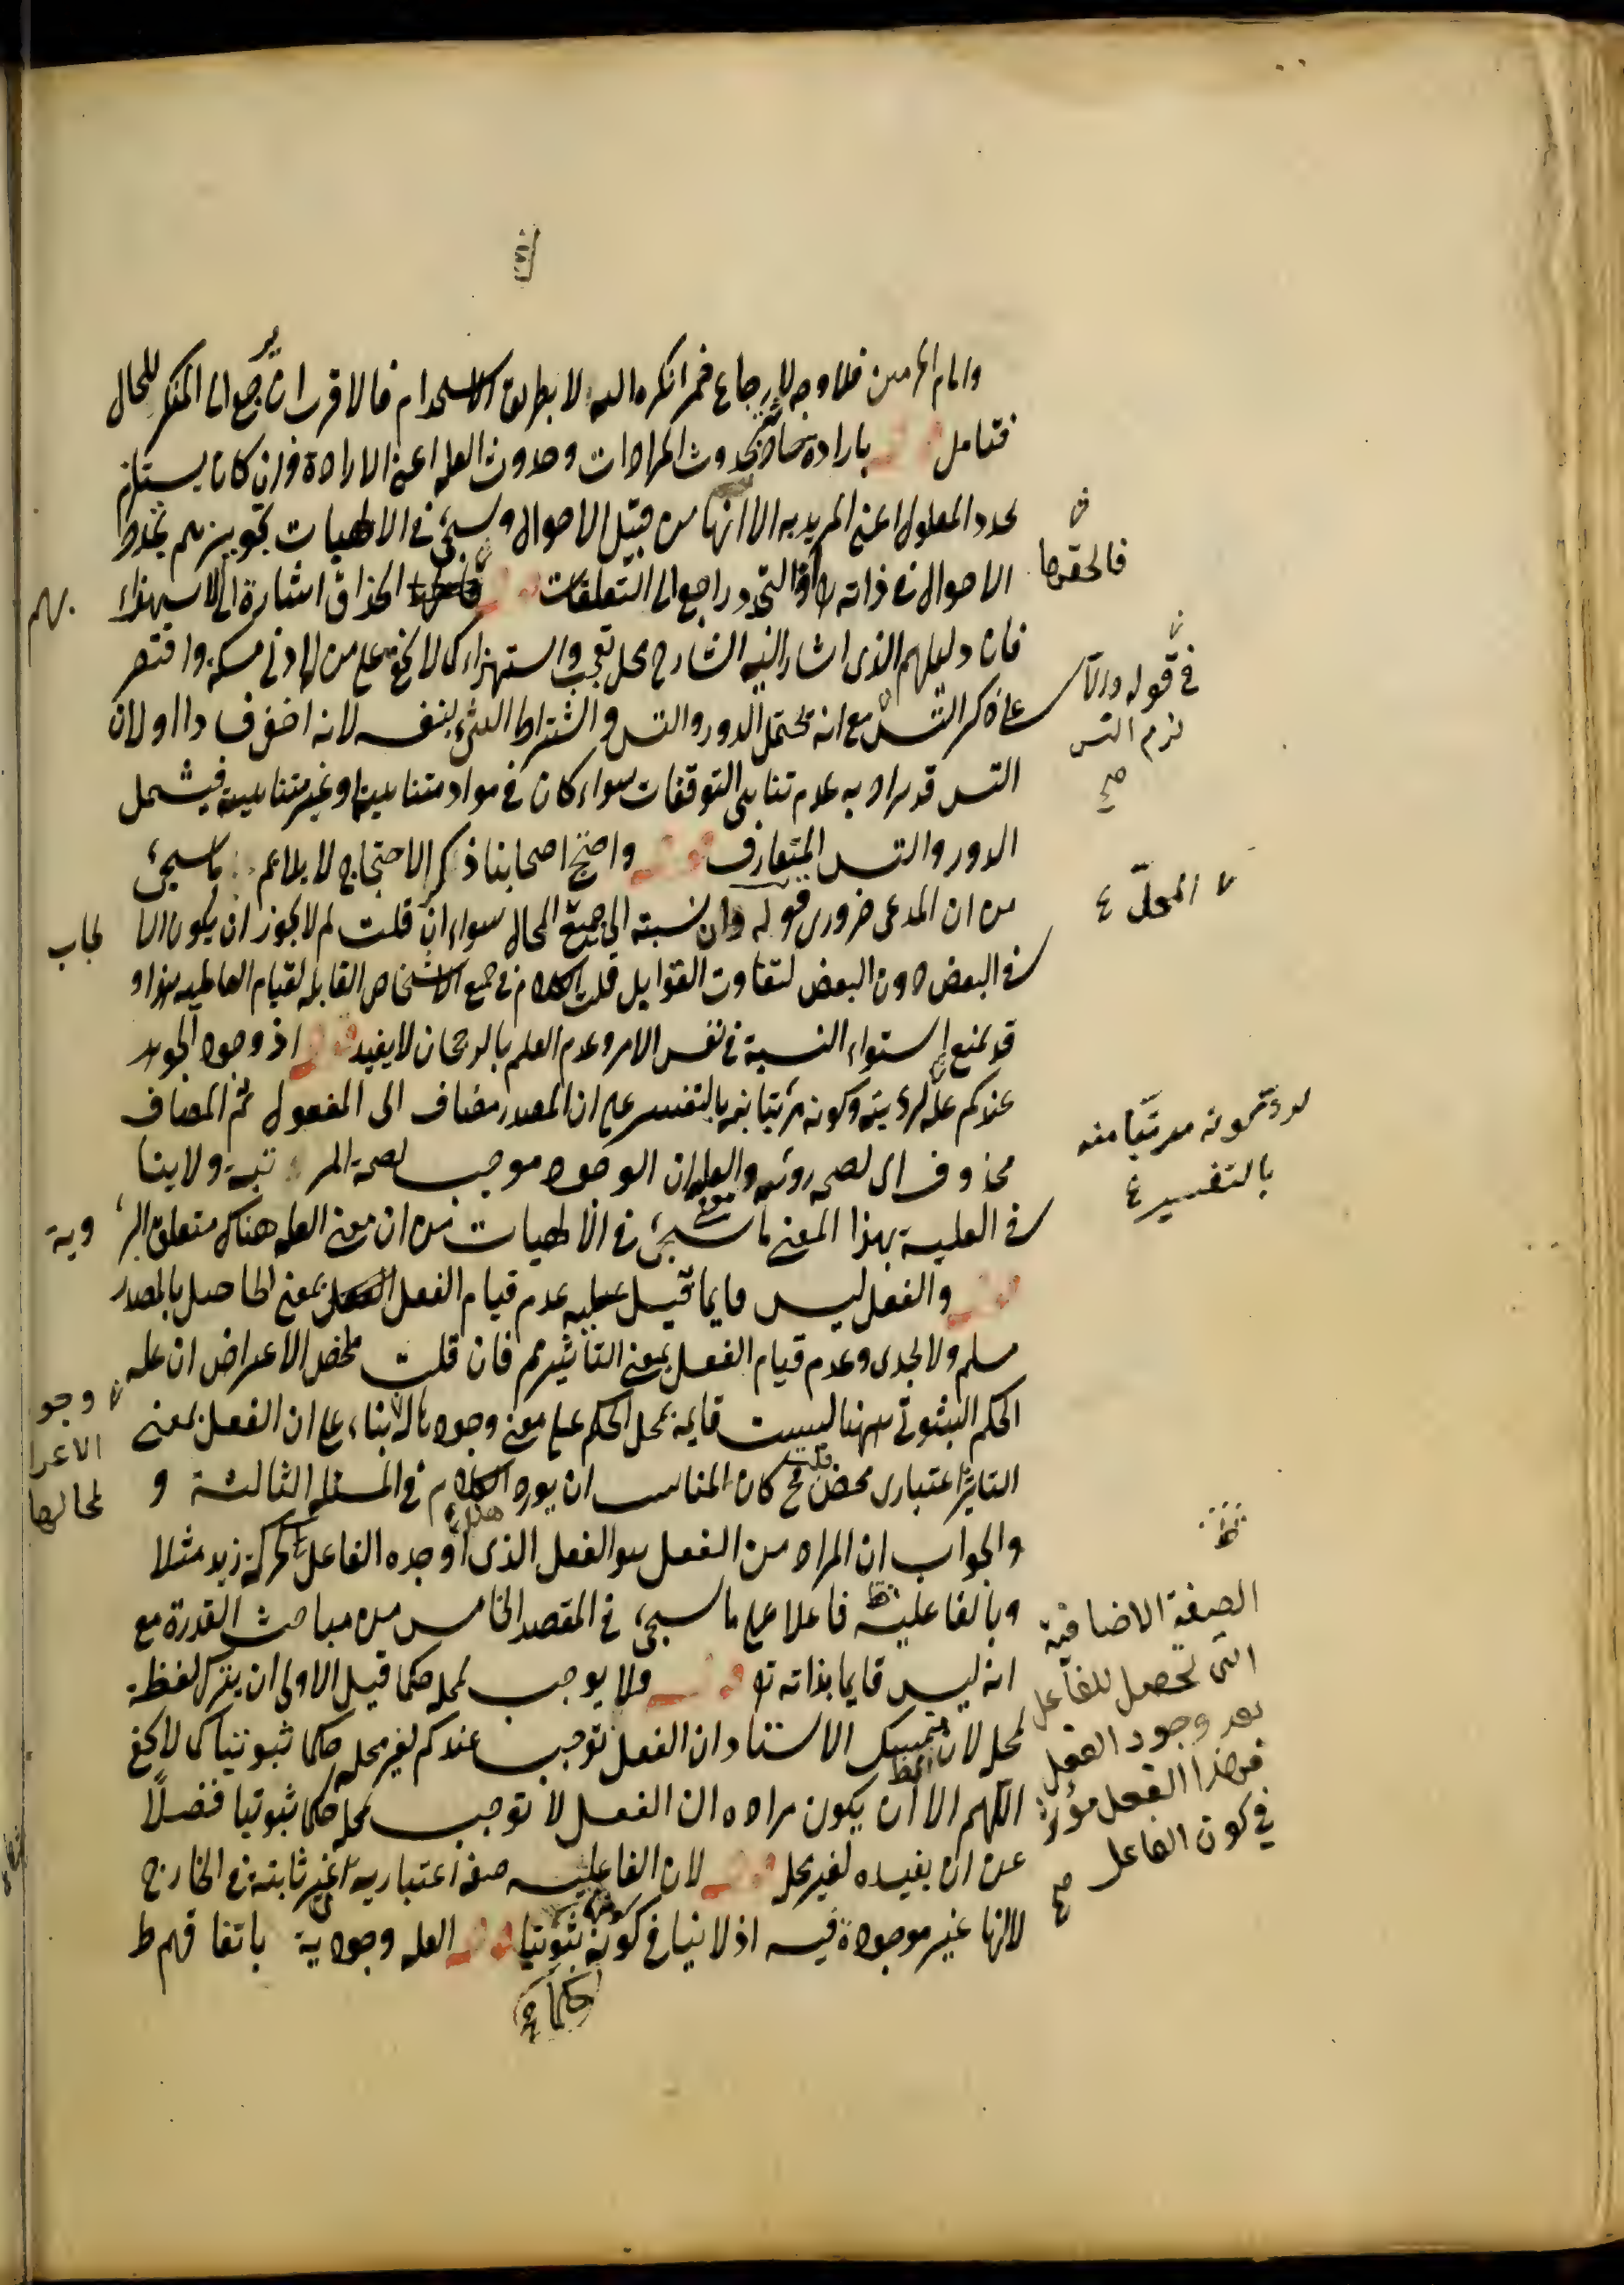 وامام الحرمين فلا وجه لإرجاع ضمير انكره اليه لا بطريق الاستخدام فالاقرب ان يرجع الى المنكر للحال
فتامل قوله بارادة حادثة حدوث المرادات وحدوث العلة اعنى الارادة وان كان يستلزم
تجدد المعلول اعنى المريدية الا انها من قبيل الاحوال وسيجئ فى الالهيات تجويزهم تجدد
الاحوال فى ذاته او التجدد راجع الى التعلقات قوله الحذاق اشارة الى الاستهزاء بهم
فان دليلهم الذى اشار اليه الشارح محل تعجب واستهزاء كما لا يخفى على من له ادنى مسكة واقتصر
على ذكر التس مع انه يحتمل الدور والتس واشتراط الشئ بنفسه لانه اخف او لان
التس قد يراد به عدم تناهى التوقفات سواء كان فى مواد متناهية او غير متناهية فيشمل
الدور والتس المتعارف قوله واحتج اصحابنا ذكر الاحتجاج لا يلائم ما سيجئ
من ان المدعى ضرورى قوله وان نسبته الى جميع المحال سواء ان قلت لم لا يجوز ان يكون
فى البعض دون البعض لتفاوت القوابل قلت الكلام فى جميع الاشخاص القابلة لقيام العالمية هذا و
قد يمنع استواء النسبة فى نفس الامر وعدم العلم بالرجحان لا يفيد قوله اذ وجود الجوهر
عندكم علة لرؤيته وكونه مرئيا بالتفسير على ان المصدر مضاف الى المفعول ثم المضاف
محذوف اى لصحة رؤيته والعلة ان الوجود موجب لصحة المرئية ولا ينا
فى العلية بهذا المعنى ما سيجئ فى الالهيات من ان معنى العلة هناك متعلق الرؤية
قوله والفعل ليس قايما قيل عليه عدم قيام الفعل بمعنى الحاصل بالمصدر
مسلم ولا يجدى وعدم قيام الفعل بمعنى التأثير مم فان قلت ملخص الاعتراض ان علة
الحكم الثبوتى ههنا ليست قايمة بمحل الحكم على معنى وجودها له بناء على ان الفعل بمعنى
التاثير اعتبارى محض قلت فح كان المناسب ان يورد الكلام فى المسئلة الثالثة و
والجواب ان المراد من الفعل هو الفعل الذى اوجده الفاعل كحركة زيد مثلا
وبالفاعلية فاعلا على ما سيجئ فى المقصد الخامس من مباحث القدرة مع
انه ليس قايما بذاته تع قوله ولا يوجب لمحله حكما قيل الاولى ان يترك لفظة
لمحله لان تمسك الاستاد ان الفعل توجب عندكم لغير محله حكما ثبوتيا كما لا يخفى
اللهم الا ان يكون مراده ان الفعل لا توجب لمحله حكما ثبوتيا فضلا
عن ان يفيده لغير محله قوله لان الفاعلية صفة اعتبارية غير ثابتة فى الخارج
لا انها غير موجودة فيه اذ لا ينافى كونه ثبوتيا قوله العلة وجودية باتفاقهم ط
فالحقوها
فى قوله والا
لزم التس
صح
المحل
بالتفسير
وجو
الاعرا
لمحالها
الصفة الاضافية
التى تحصل للفاعل
بعد وجود الفعل
فهذا الفعل مؤثر
فى كون الفاعل
صح